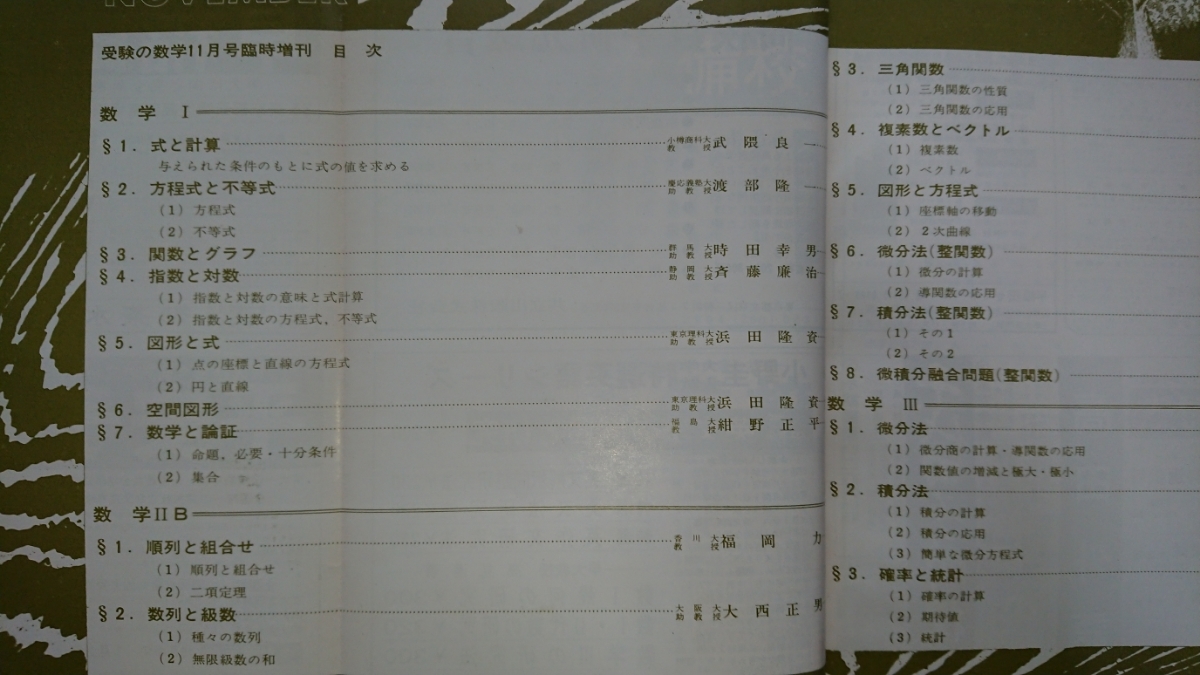 NOVEMBER
受験の数学11月号臨時増刊 目次
数学 I
§1. 式と計算 小樽商科大教授 武隈良
与えられた条件のもとに式の値を求める
§2. 方程式と不等式 慶応義塾大助教授 渡部隆
(1) 方程式
(2) 不等式
§3. 関数とグラフ 群馬大助教授 時田幸男
§4. 指数と対数 静岡大助教授 斉藤廉治
(1) 指数と対数の意味と式計算
(2) 指数と対数の方程式, 不等式
§5. 図形と式 東京理科大助教授 浜田隆資
(1) 点の座標と直線の方程式
(2) 円と直線
§6. 空間図形 東京理科大助教授 浜田隆資
§7. 数学と論証 福島大教授 紺野正平
(1) 命題, 必要・十分条件
(2) 集合
数学IIB
§1. 順列と組合せ 香川大教授 福岡力
(1) 順列と組合せ
(2) 二項定理
§2. 数列と級数 大阪大助教授 大西正男
(1) 種々の数列
(2) 無限級数の和
§3. 三角関数
(1) 三角関数の性質
(2) 三角関数の応用
§4. 複素数とベクトル
(1) 複素数
(2) ベクトル
§5. 図形と方程式
(1) 座標軸の移動
(2) 2次曲線
§6. 微分法(整関数)
(1) 微分の計算
(2) 導関数の応用
§7. 積分法(整関数)
(1) その1
(2) その2
§8. 微積分融合問題(整関数)
数学 III
§1. 微分法
(1) 微分商の計算・導関数の応用
(2) 関数値の増減と極大・極小
§2. 積分法
(1) 積分の計算
(2) 積分の応用
(3) 簡単な微分方程式
§3. 確率と統計
(1) 確率の計算
(2) 期待値
(3) 統計